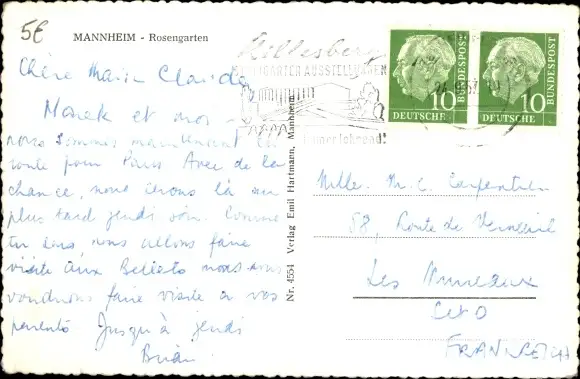 5€
MANNHEIM - Rosengarten
Killesberg
GARTEN AUSSTELLUNGEN
10
DEUTSCHE
BUNDESPOST
10
DEUTSCHE
BUNDESPOST
Chère Marie Claude
et moi
nous sommes maintenant en
route pour Paris Avec de la
chance, nous serons là au
plus tard jeudi soir. Comme
tu sais nous allons faire
visite aux nous
voudrions faire visite à vos
parents Jusqu'à jeudi
Brian
Nr. 4554 Verlag Emil Hartmann, Mannheim
Mlle. M. C. Carpentier
58, Route de Verneuil
Les Mureaux
S et O
FRANKREICH